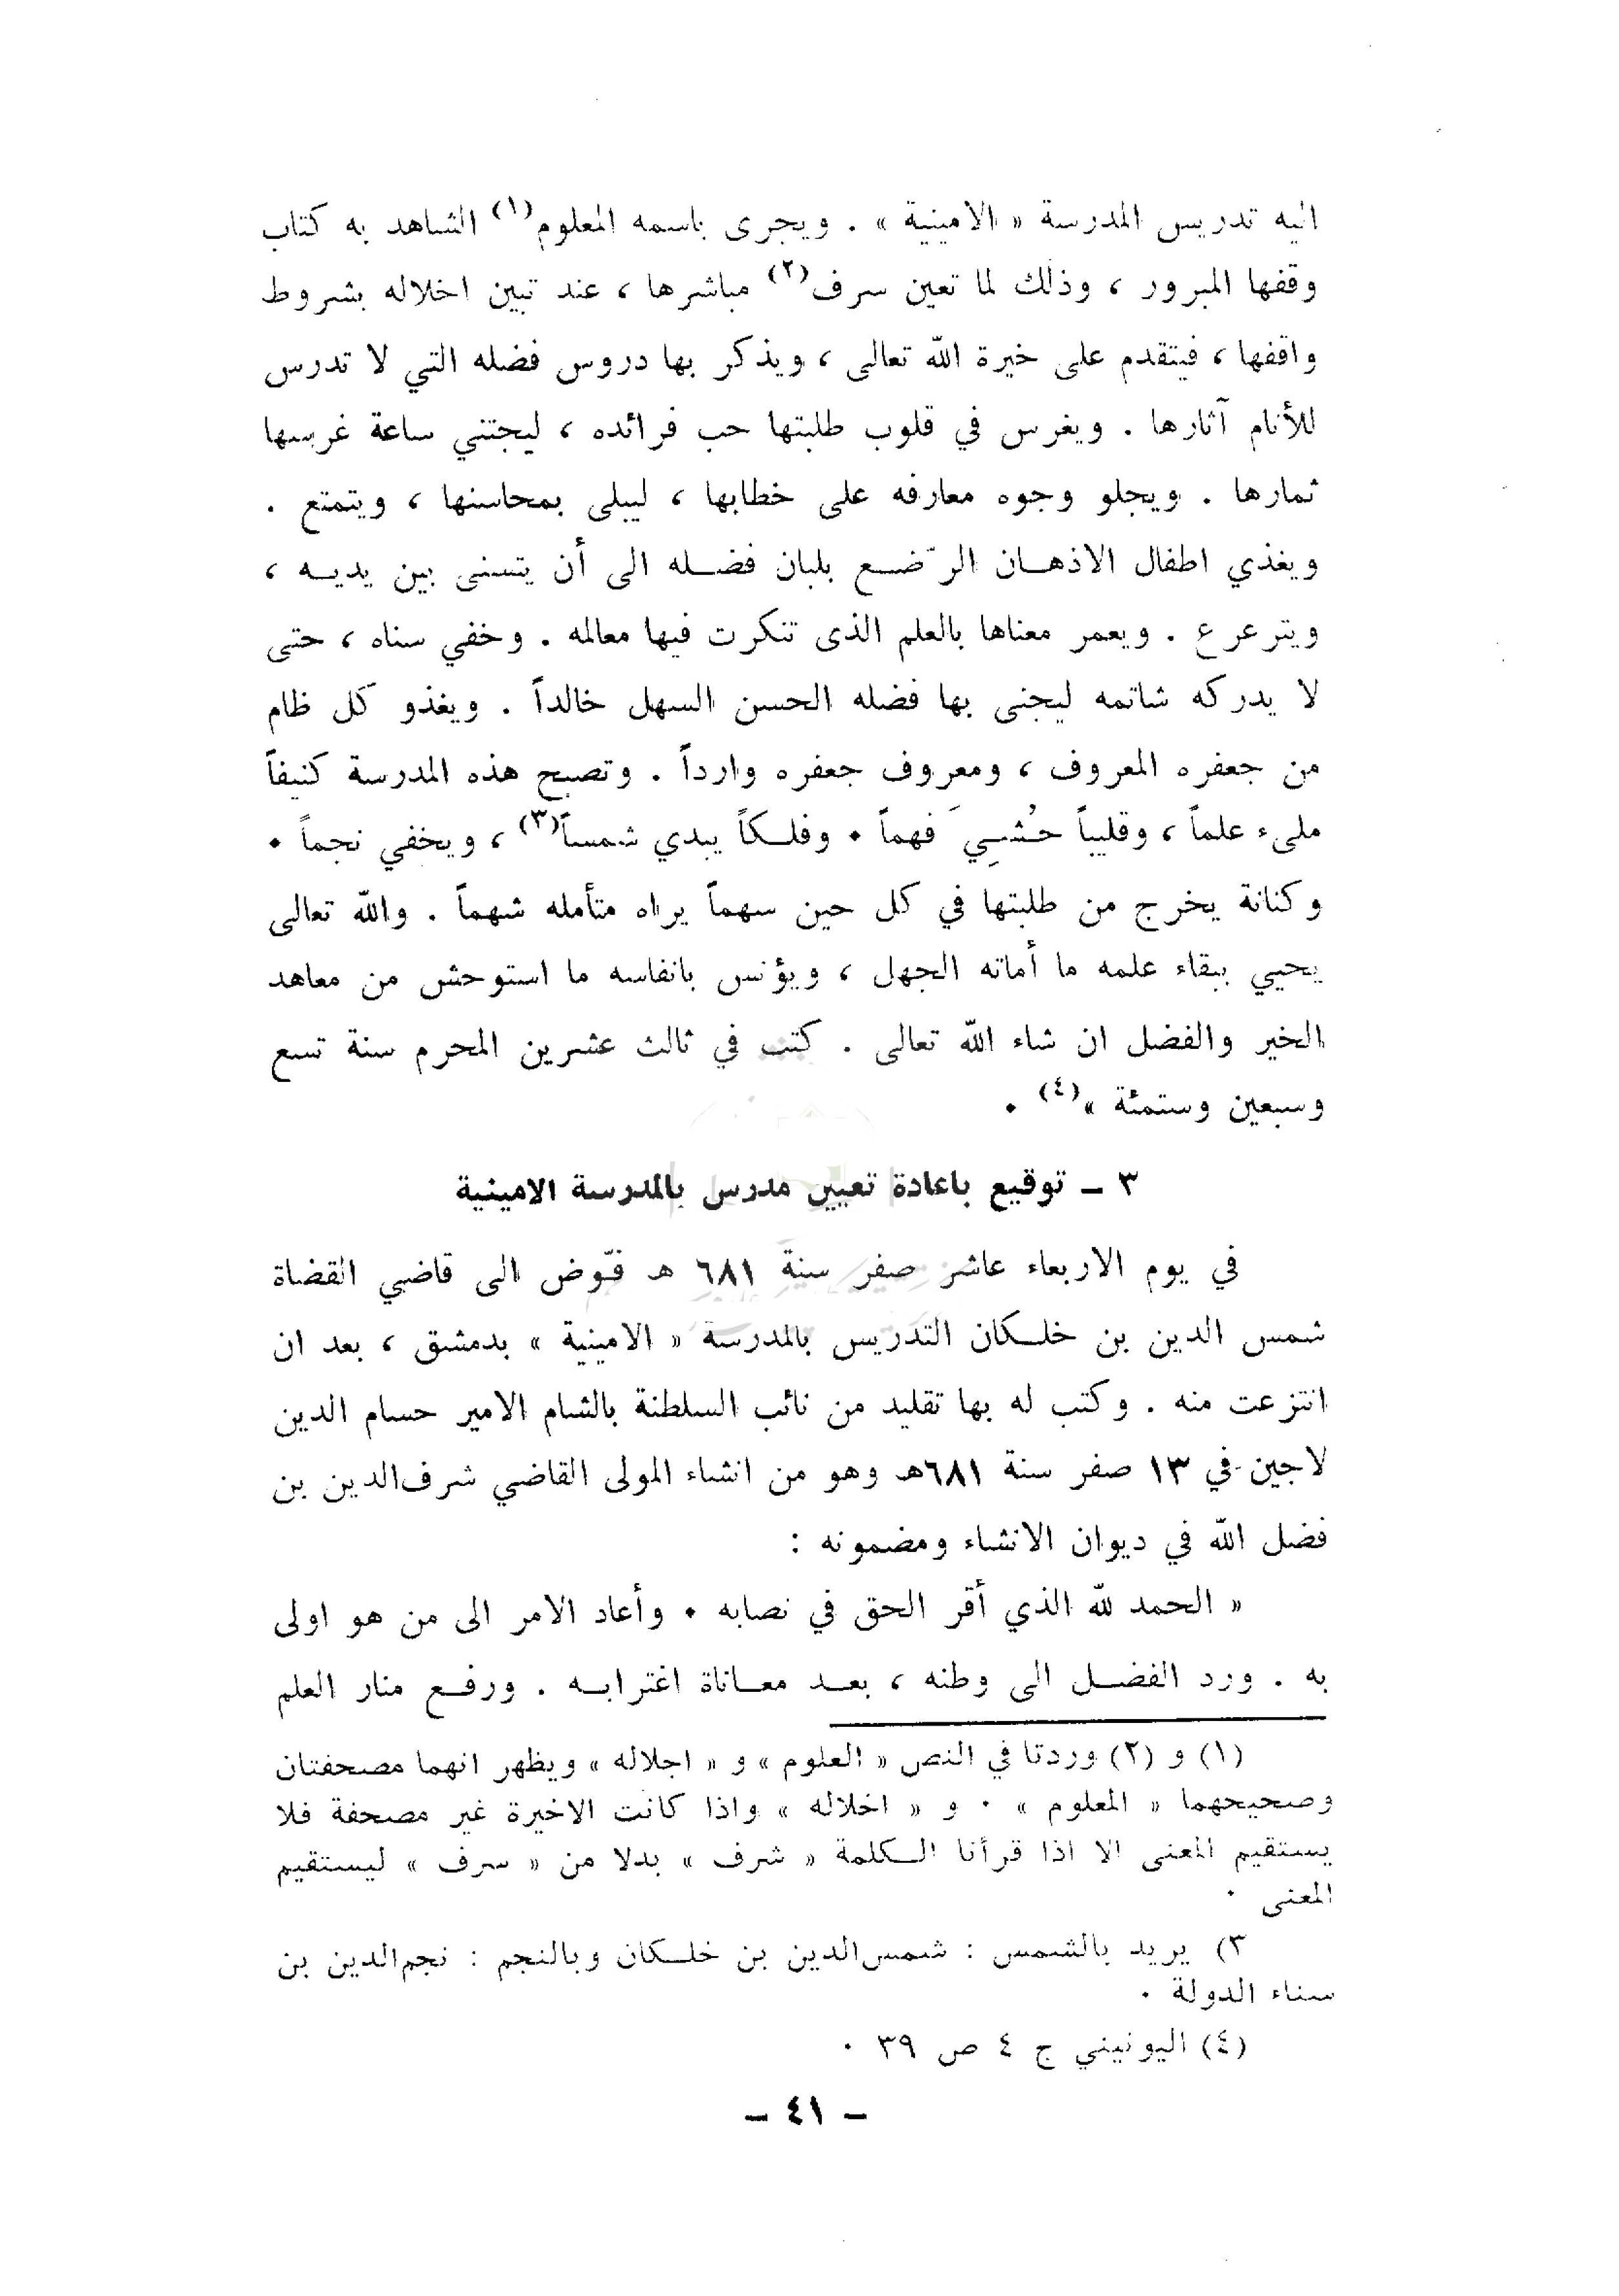 اليه تدريس المدرسة « الامينية » . ويجرى باسمه المعلوم(١) الشاهد به كتاب
وقفها المبرور ، وذلك لما تعين سرف(٢) مباشرها ، عند تبين اخلاله بشروط
واقفها ، فيتقدم على خيرة الله تعالى ، ويذكر بها دروس فضله التي لا تدرس
للأنام آثارها . ويغرس في قلوب طلبتها حب فرائده ، ليجتني ساعة غرسها
ثمارها . ويجلو وجوه معارفه على خطابها ، ليبلى بمحاسنها ، ويتمتع .
ويغذي اطفال الاذهان الرّضع بلبان فضله الى أن يتسنى بين يديه ،
ويترعرع . ويعمر معناها بالعلم الذى تنكرت فيها معالمه . وخفي سناه ، حتى
لا يدركه شاتمه ليجنى بها فضله الحسن السهل خالداً . ويغذو كل ظام
من جعفره المعروف ، ومعروف جعفره وارداً . وتصبح هذه المدرسة كنيفاً
ملىء علماً ، وقليباً حُشِيَ فهماً . وفلكاً يبدي شمساً(٣) ، ويخفي نجماً .
وكنانة يخرج من طلبتها في كل حين سهماً يراه متأمله شهماً . والله تعالى
يحيي ببقاء علمه ما أماته الجهل ، ويؤنس بانفاسه ما استوحش من معاهد
الخير والفضل ان شاء الله تعالى . كتب في ثالث عشرين المحرم سنة تسع
وسبعين وستمئة »(٤) .
٣ - توقيع باعادة تعيين مدرس بالمدرسة الامينية
في يوم الاربعاء عاشر صفر سنة ٦٨١ هـ فوّض الى قاضي القضاة
شمس الدين بن خلكان التدريس بالمدرسة « الامينية » بدمشق ، بعد ان
انتزعت منه . وكتب له بها تقليد من نائب السلطنة بالشام الامير حسام الدين
لاجين في ١٣ صفر سنة ٦٨١هـ وهو من انشاء المولى القاضي شرف الدين بن
فضل الله في ديوان الانشاء ومضمونه :
« الحمد لله الذي أقر الحق في نصابه . وأعاد الامر الى من هو اولى
به . ورد الفضل الى وطنه ، بعد معاناة اغترابه . ورفع منار العلم
(١) و (٢) وردتا في النص « العلوم » و « اجلاله » ويظهر انهما مصحفتان
وصحيحهما « المعلوم » . و « اخلاله » واذا كانت الاخيرة غير مصحفة فلا
يستقيم المعنى الا اذا قرأنا الكلمة « شرف » بدلا من « سرف » ليستقيم
المعنى .
٣) يريد بالشمس : شمس الدين بن خلكان وبالنجم : نجم الدين بن
سناء الدولة .
(٤) اليونيني ج ٤ ص ٣٩ .
- ٤١ -